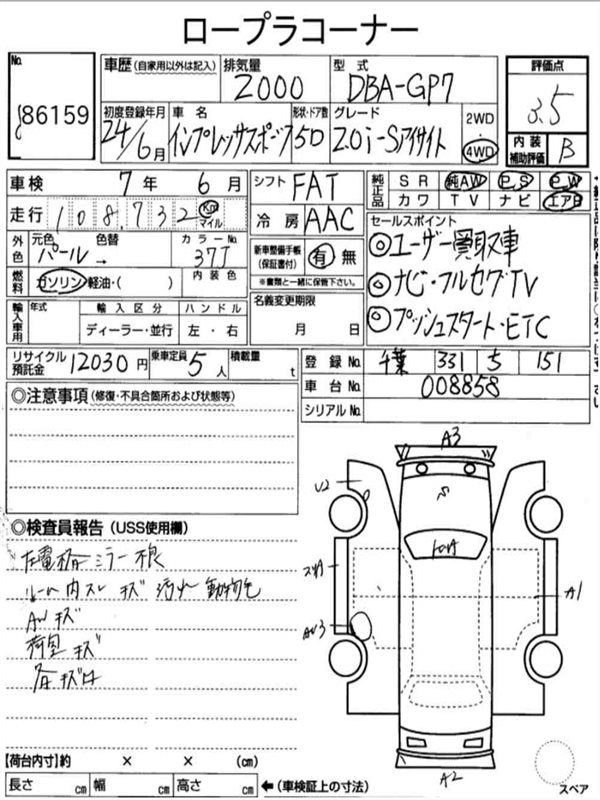 ロープラコーナー
No. 86159
車歴(自家用以外は記入) 排気量 2000 型式 DBA-GP7
評価点 3.5
初度登録年月 24/6月 車名 インプレッサスポーツ 形状・ドア数 5D グレード 2.0i-Sアイサイト 2WD 4WD
内装補助評価 B
車検 7年 6月 シフト FAT 純正品 SR 純AW P.S P.W
走行 108,732 Km マイル 冷房 AAC カワ TV ナビ エアB
外色 元色 色替 パール→ カラーNo. 37J
新車整備手帳(保証書付) 有 無
※書類と一緒に保管下さい。
セールスポイント
◎ユーザー買取車
◎ナビ・フルセグTV
◎プッシュスタート・ETC
燃料 ガソリン・軽油・( ) 内装色
名義変更期限 月 日
輸入車用 年式 輸入区分 ハンドル
ディーラー・並行 左・右
リサイクル預託金 12030円 乗車定員 5人 積載量 t
登録No. 千葉 331 5 151
車台No. 008858
シリアルNo.
◎注意事項(修復・不具合箇所および状態等)
◎検査員報告(USS使用欄)
左電格ミラー不良
ルーム内スレ キズ 汚れ 動物毛
AWキズ
荷室キズ
A3
U2
A1
A2
スペア
【荷台内寸】約 × × (cm)
長さ cm 幅 cm 高さ cm ←(車検証上の寸法)